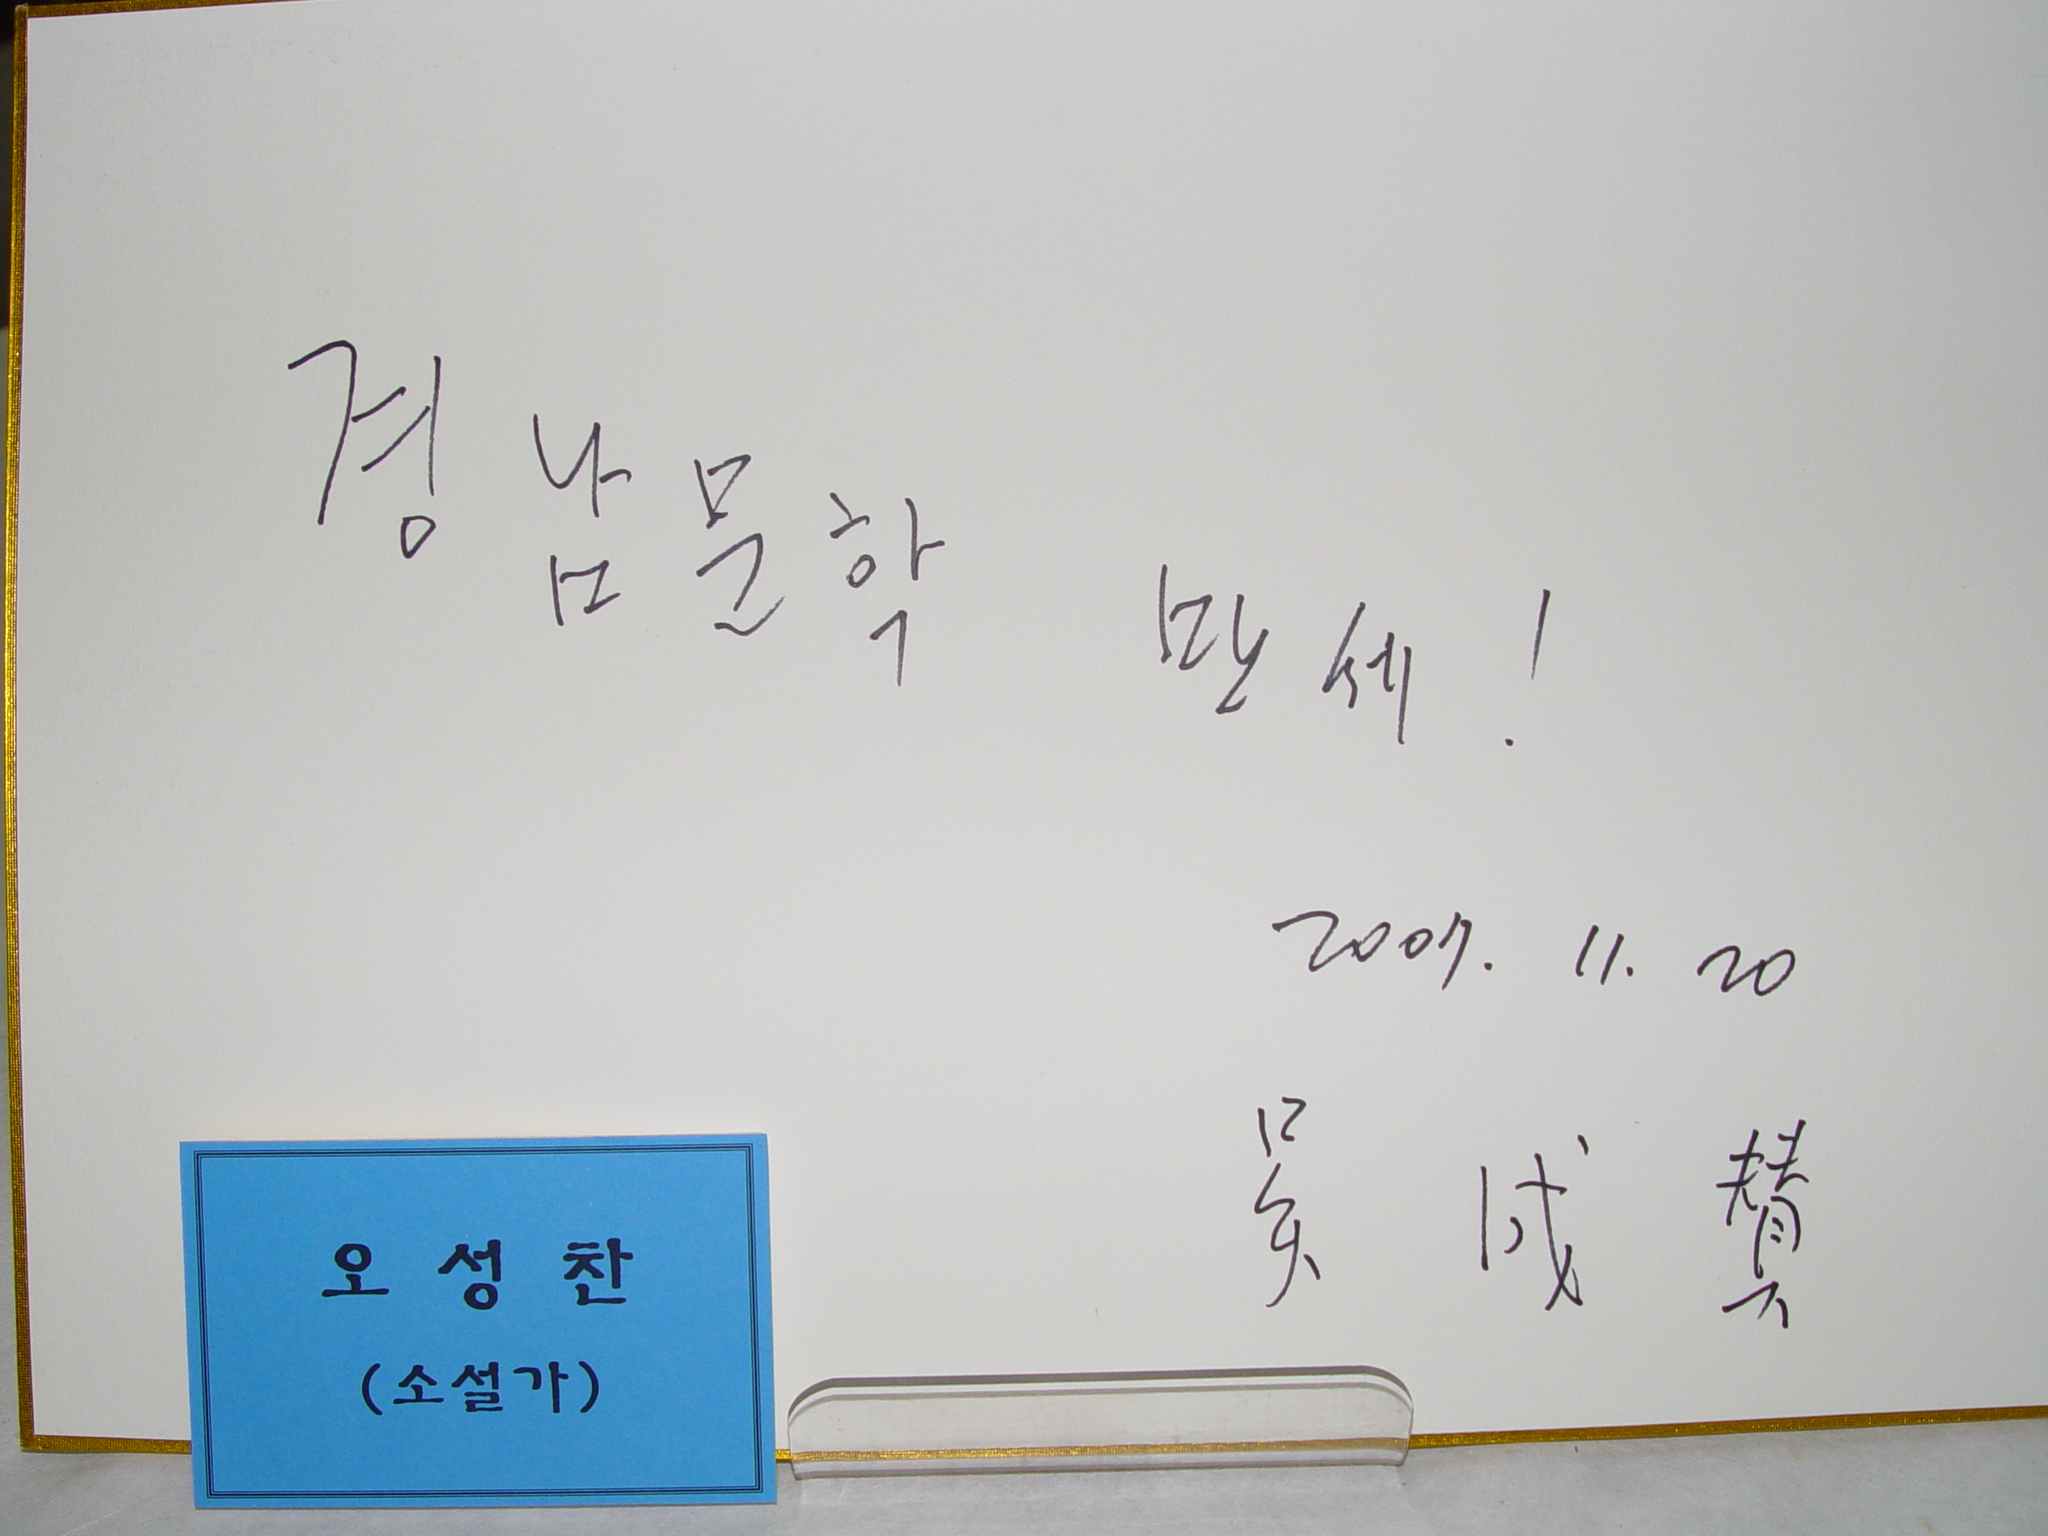 경남문학 만세!
2007. 11. 20
吳成贊
오성찬
(소설가)